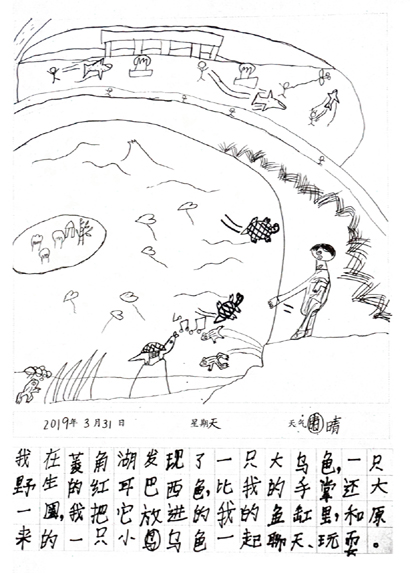 2019年3月31日 星期天 天气 晴
我在菱角湖发现了一只大乌龟,一只
野生的红耳巴西龟,比我的手掌还大
一圈,我把它放进我的鱼缸里,和原
来的一只小乌龟一起聊天、玩耍。